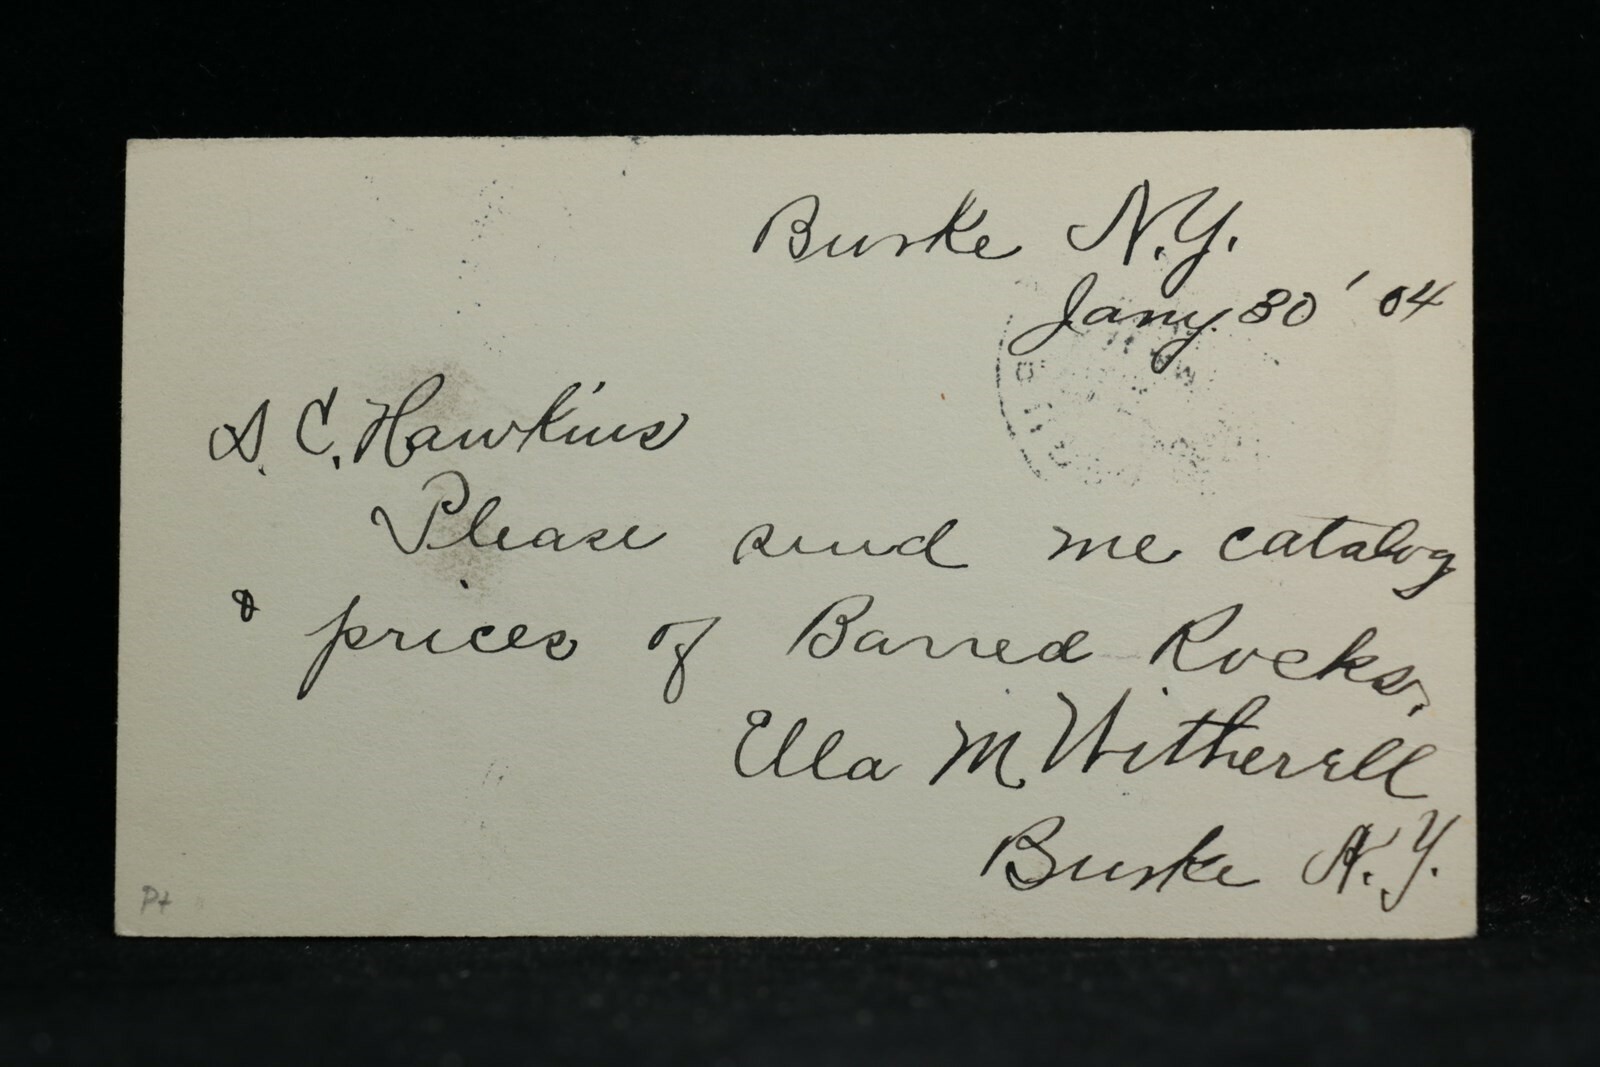 Burke N.Y.
Jany. 30' 04
A. C. Hawkins
Please send me catalog
& prices of Barred Rocks.
Ella M. Witherell
Burke N.Y.
P+